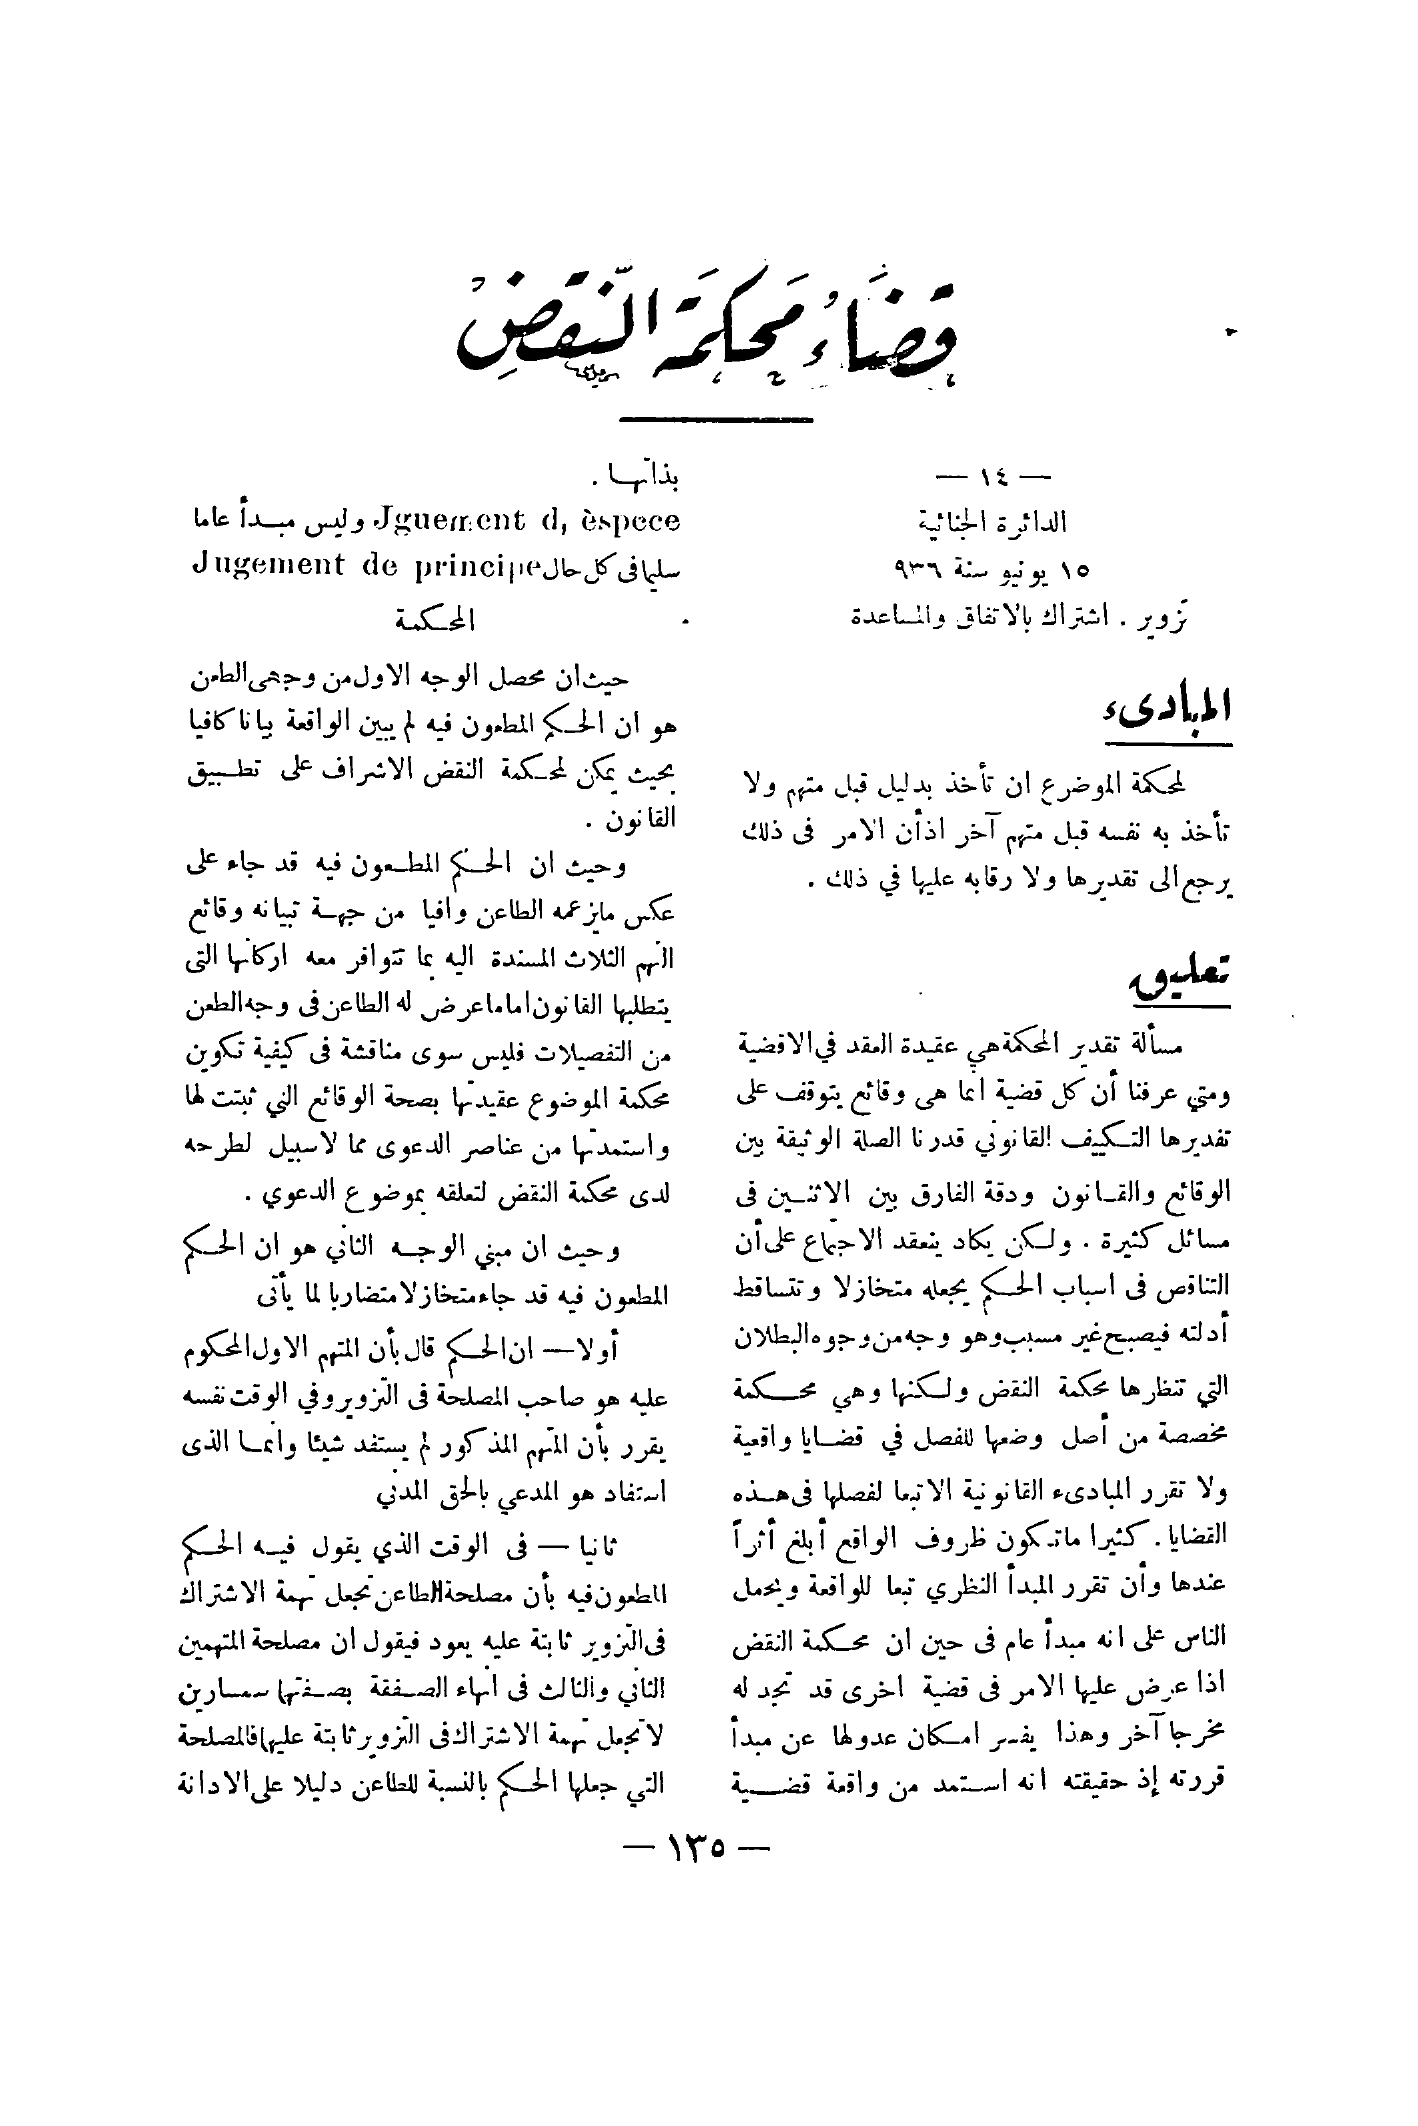 قضاء محكمة النقض
— ١٤ —
الدائرة الجنائية
١٥ يونيو سنة ٩٣٦
تزوير . اشتراك بالاتفاق والمساعدة
المبادىء
لمحكمة الموضوع ان تأخذ بدليل قبل متهم ولا
تأخذ به نفسه قبل متهم آخر اذأن الامر فى ذلك
يرجع الى تقديرها ولا رقابه عليها في ذلك .
تعليق
مسألة تقدير المحكمة هي عقيدة العقد في الاقضية
ومتي عرفنا أن كل قضية انما هى وقائع يتوقف على
تقديرها التكييف القانوني قدرنا الصلة الوثيقة بين
الوقائع والقانون ودقة الفارق بين الاثنين فى
مسائل كثيرة . ولكن يكاد ينعقد الاجماع على أن
التناقص فى اسباب الحكم يجعله متخازلا وتتساقط
أدلته فيصبح غير مسبب وهو وجه من وجوه البطلان
التي تنظرها محكمة النقض ولكنها وهي محكمة
مخصصة من أصل وضعها للفصل في قضايا واقعية
ولا تقرر المبادىء القانونية الا تبعا لفصلها فى هذه
القضايا . كثيرا ماتكون ظروف الواقع أبلغ أثراً
عندها وأن تقرر المبدأ النظري تبعا للواقعة ويحمل
الناس على انه مبدأ عام فى حين ان محكمة النقض
اذا عرض عليها الامر فى قضية اخرى قد تجد له
مخرجا آخر وهذا يفسر امكان عدولها عن مبدأ
قررته إذ حقيقته انه استمد من واقعة قضية
بذاتها .
Jguement d, èspece وليس مبدأ عاما
سليما فى كل حال Jugement de principe
المحكمة
حيث ان محصل الوجه الاول من وجهى الطعن
هو ان الحكم المطعون فيه لم يبين الواقعة بيانا كافيا
بحيث يمكن لمحكمة النقض الاشراف على تطبيق
القانون .
وحيث ان الحكم المطعون فيه قد جاء على
عكس مايزعمه الطاعن وافيا من جهة تبيانه وقائع
التهم الثلاث المسندة اليه بما تتوافر معه اركانها التى
يتطلبها القانون اما ماعرض له الطاعن فى وجه الطعن
من التفصيلات فليس سوى مناقشة فى كيفية تكوين
محكمة الموضوع عقيدتها بصحة الوقائع التي ثبتت لها
واستمدتها من عناصر الدعوى مما لا سبيل لطرحه
لدى محكمة النقض لتعلقه بموضوع الدعوي .
وحيث ان مبني الوجه الثاني هو ان الحكم
المطعون فيه قد جاء متخازلا متضاربا لما يأتى
أولا — ان الحكم قال بأن المتهم الاول المحكوم
عليه هو صاحب المصلحة فى التزوير وفي الوقت نفسه
يقرر بأن المتهم المذكور لم يستفد شيئا وانما الذى
استفاد هو المدعي بالحق المدني
ثانيا — فى الوقت الذي يقول فيه الحكم
المطعون فيه بأن مصلحة الطاعن تجعل تهمة الاشتراك
فى التزوير ثابتة عليه يعود فيقول ان مصلحة المتهمين
الثاني والثالث فى انهاء الصفقة بصفتها سمسارين
لا تجعل تهمة الاشتراك فى التزوير ثابتة عليها فالمصلحة
التي جعلها الحكم بالنسبة للطاعن دليلا على الادانة
— ١٣٥ —